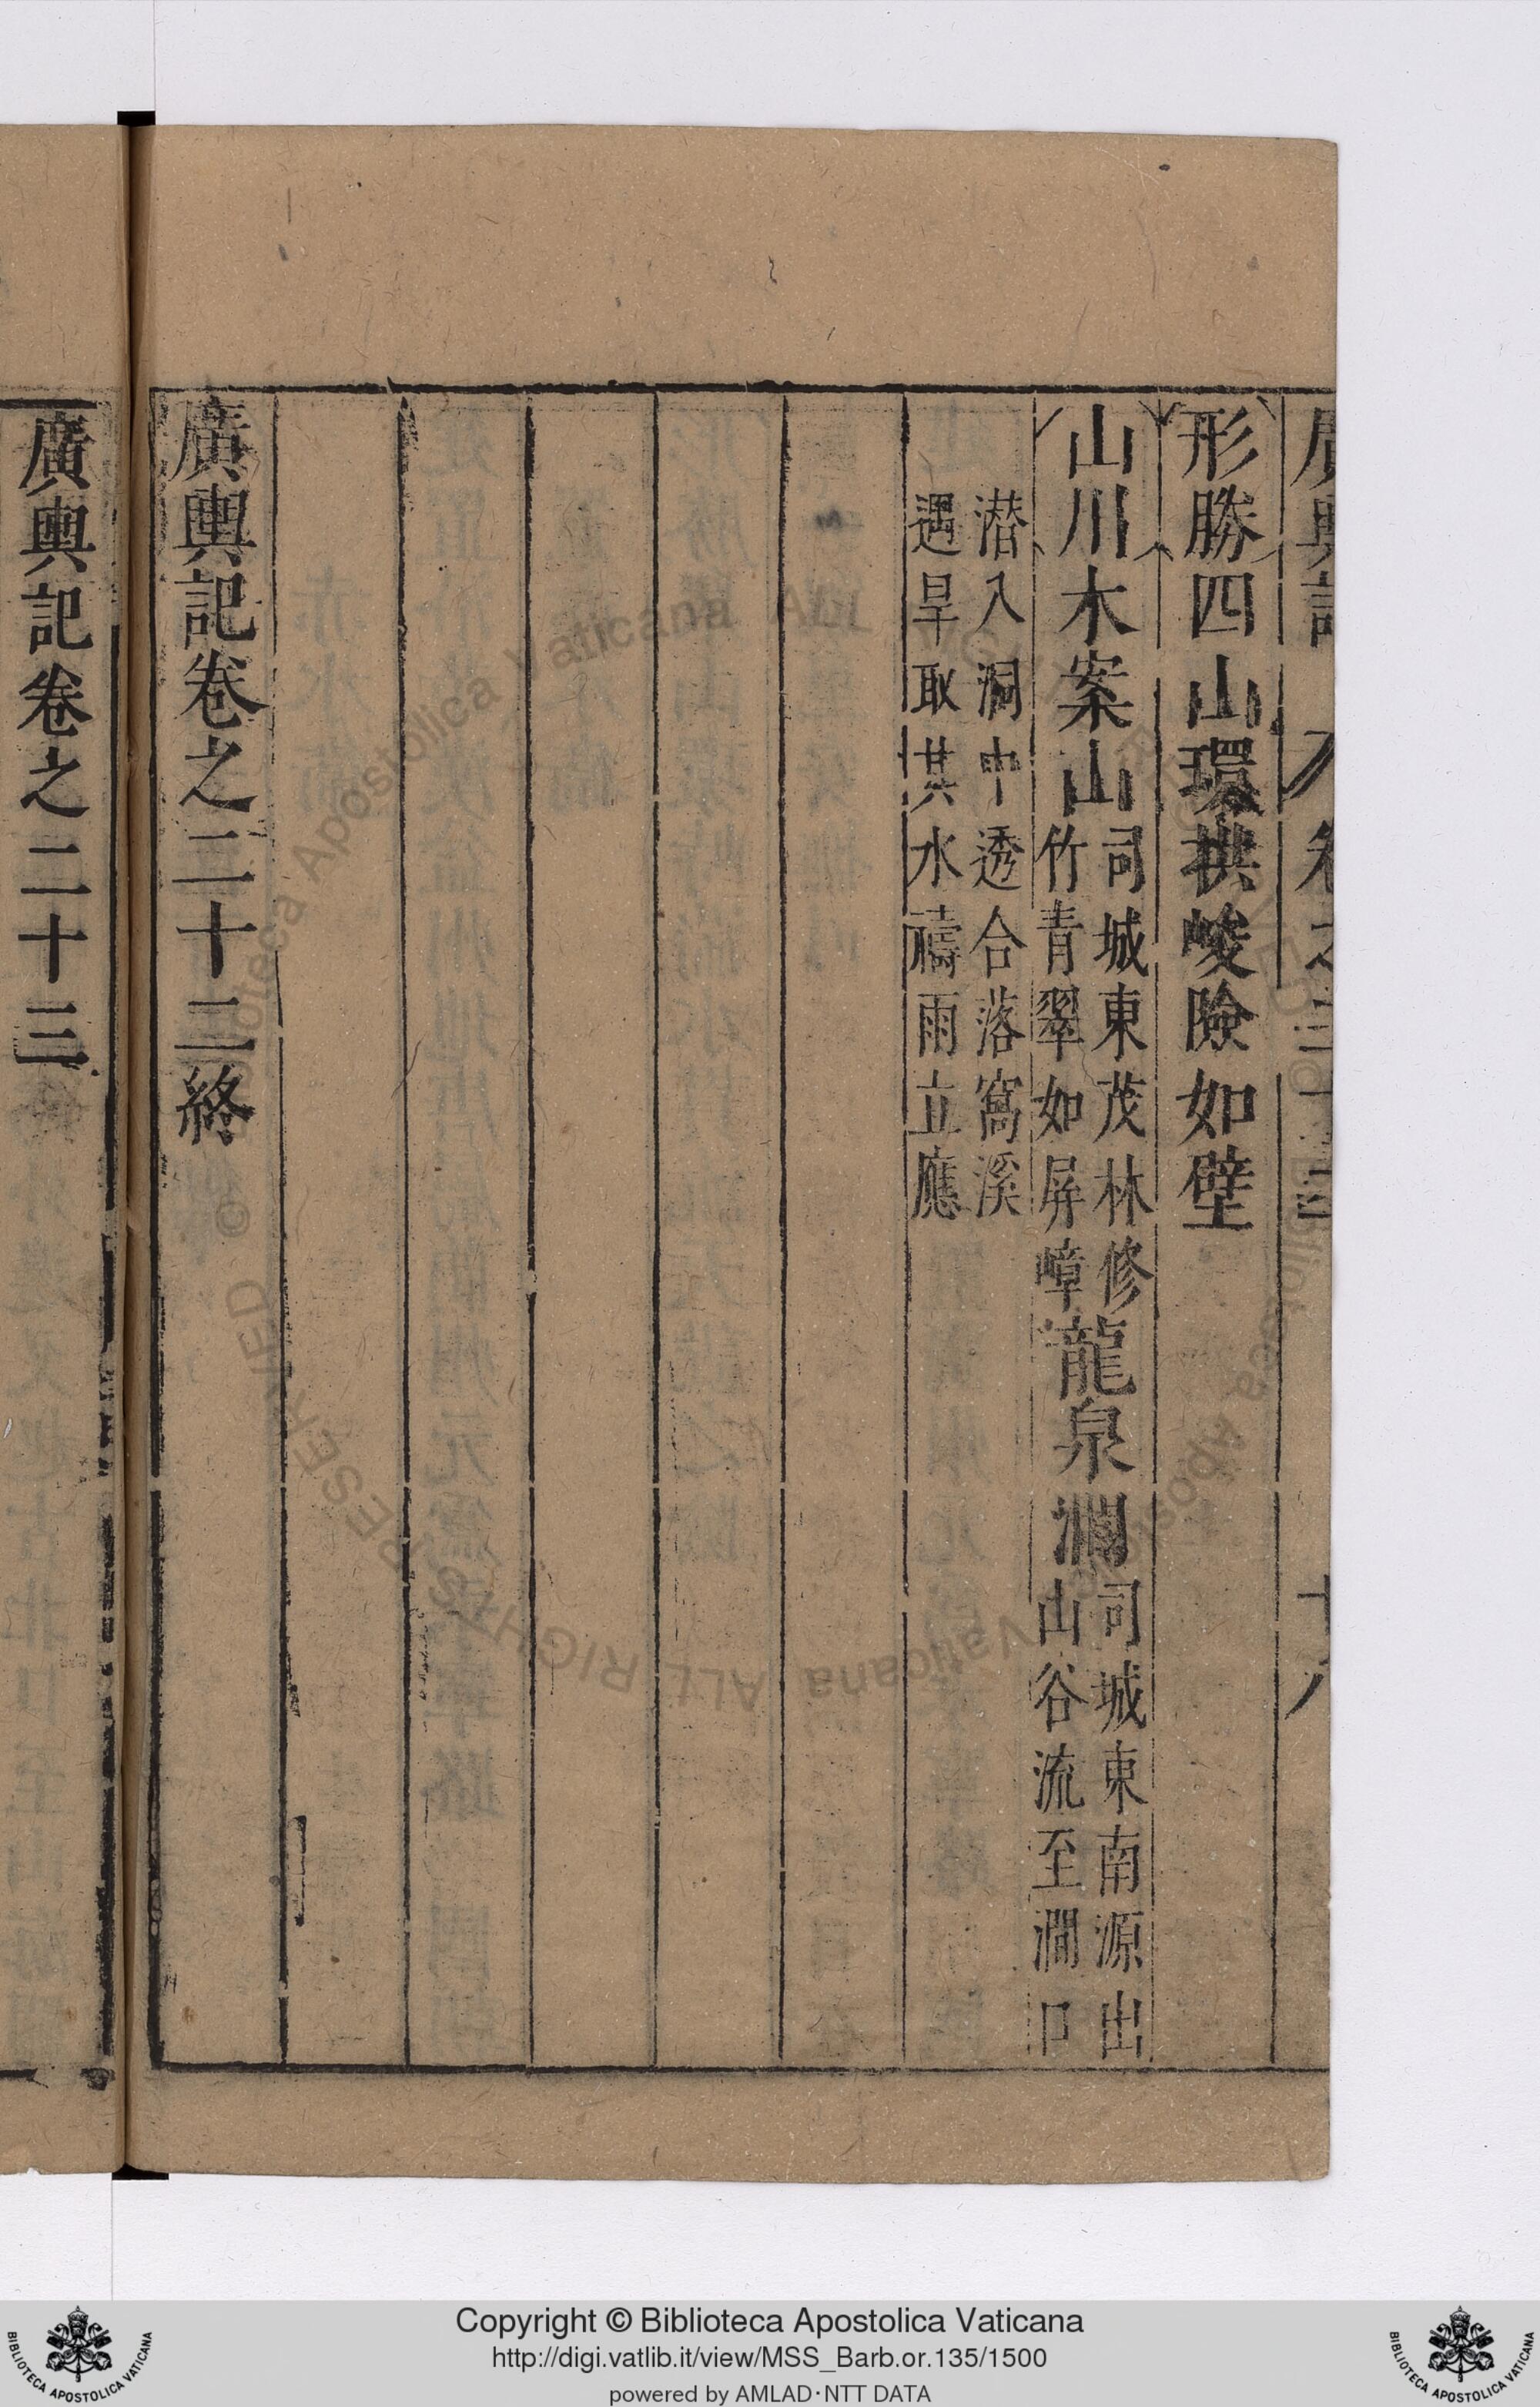 廣輿記 卷之二十二 十八
形勝四山環拱峻險如壁
山川木案山司城東茂林修竹青翠如屏嶂龍泉澗司城東南源出山谷流至澗口
潛入洞中透合落窩溪
遇旱取其水禱雨立應
廣輿記卷之二十二終
廣輿記卷之二十三
Copyright © Biblioteca Apostolica Vaticana
http://digi.vatlib.it/view/MSS_Barb.or.135/1500
powered by AMLAD·NTT DATA
BIBLIOTECA APOSTOLICA VATICANA
BIBLIOTECA APOSTOLICA VATICANA